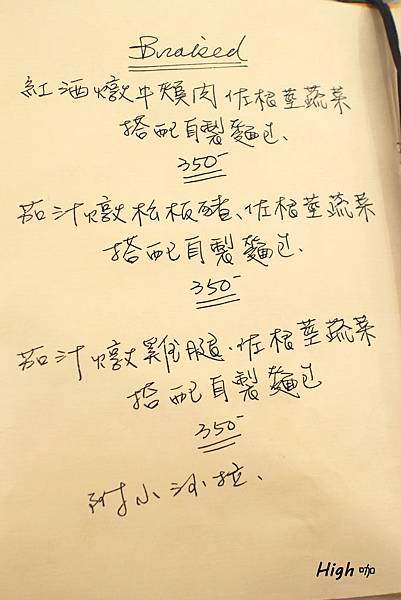 Braised
紅酒燉牛頰肉佐根莖蔬菜
搭配自製麵包、
350-
茄汁燉松板豬、佐根莖蔬菜
搭配自製麵包、
350-
茄汁燉雞腿、佐根莖蔬菜
搭配自製麵包
350-
附小沙拉、
High咖